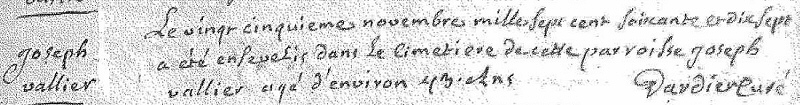 Le vingt cinquieme novembre mille sept cent soixante et dix sept
joseph
a été ensevelis dans le Cimetiere de cette parroisse joseph
vallier
vallier agé d'environ 43. ans
Dardier Curé